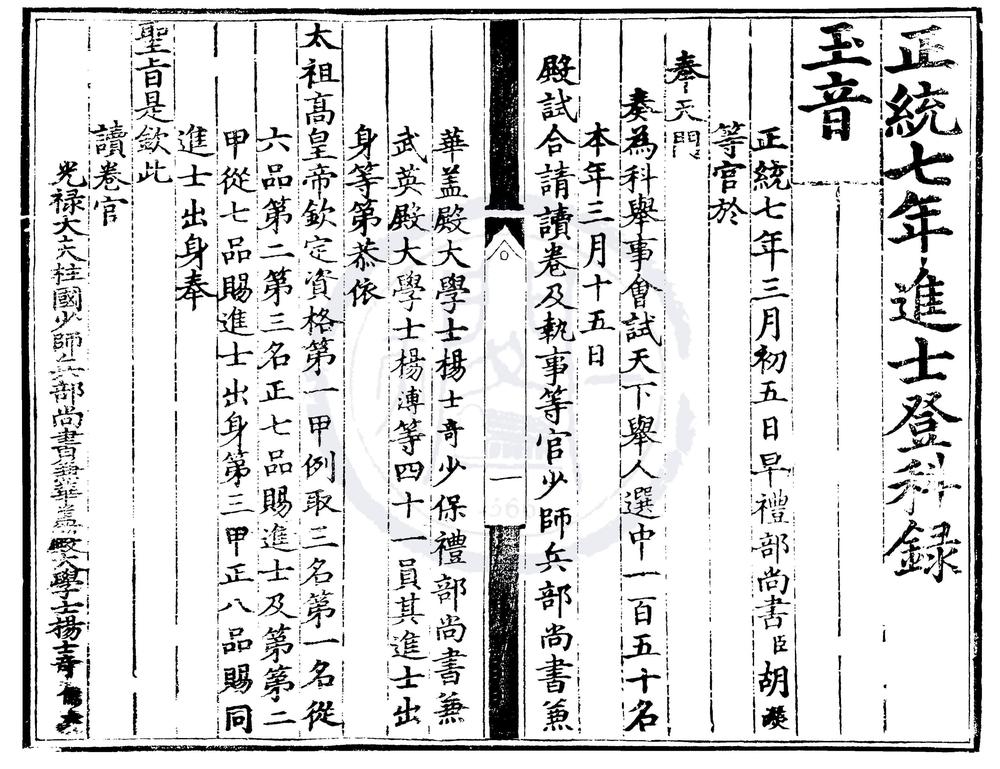 正統七年進士登科録
玉音
正統七年三月初五日早禮部尚書臣胡濙
等官於
奏天門
奏為科舉事會試天下舉人選中一百五十名
本年三月十五日
殿試合請讀卷及執事等官少師兵部尚書兼
一
華盖殿大學士楊士奇少保禮部尚書兼
武英殿大學士楊溥等四十一員其進士出
身等第恭依
太祖高皇帝欽定資格第一甲例取三名第一名從
六品第二第三名正七品賜進士及第第二
甲從七品賜進士出身第三甲正八品賜同
進士出身奉
聖旨是欽此
讀卷官
光禄大夫柱國少師兵部尚書兼華盖殿大學士楊士奇